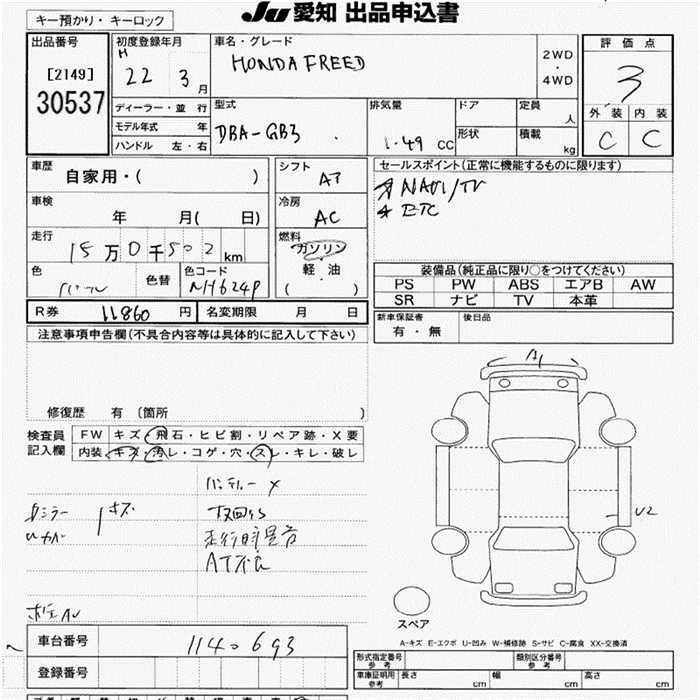 キー預かり・キーロック
JU 愛知 出品申込書
出品番号
[2149]
30537
初度登録年月
H
22 3 月
車名・グレード
HONDA FREED
2WD
・
4WD
評価点
3
外装 内装
C C
ディーラー・並行
モデル年式 年
ハンドル 左・右
型式
DBA-GB3
排気量
1.49 CC
ドア
形状
定員
人
積載
kg
車歴
自家用・( )
シフト
AT
セールスポイント(正常に機能するものに限ります)
NAVI/TV
ETC
車検
年 月( 日)
冷房
AC
走行
15万0千502km
燃料
ガソリン
軽・油
( )
色
色替
色コード
NH624P
装備品(純正品に限り○をつけてください)
PS PW ABS エアB AW
SR ナビ TV 本革
R券 11860 円
名変期限 月 日
新車保証書
有・無
後日品
注意事項申告欄(不具合内容等は具体的に記入して下さい)
修復歴 有 〔箇所 〕
検査員
記入欄
FW キズ・飛石・ヒビ割・リペア跡・X要
内装 キズ・汚レ・コゲ・穴・スレ・キレ・破レ
A1
U2
キズ
走行時異音
スペア
A-キズ E-エクボ U-凹み W-補修跡 S-サビ C-腐食 XX-交換済
車台番号
1140693
登録番号
形式指定番号
参考
類別区分番号
参考
車庫証明用
参考
長さ cm
幅 cm
高さ cm